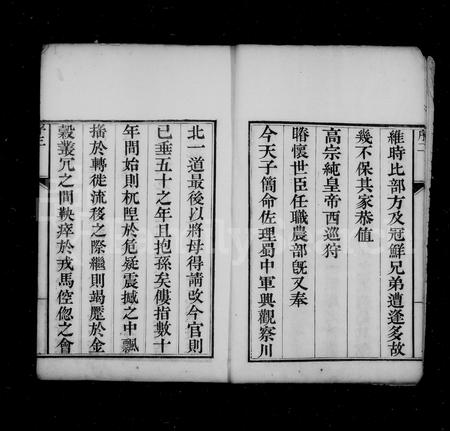 序二
維時比部方及冠鮮兄弟遭逢多故
幾不保其家恭值
高宗純皇帝西巡狩
睠懷世臣任職農部旣又奉
今天子簡命佐理蜀中軍興觀察川
北一道最後以將母得請改今官則
已垂五十之年且抱孫矣僂指數十
年間始則杌隉於危疑震撼之中飄
搖於轉徙流移之際繼則竭蹷於金
穀叢冗之間鞅瘁於戎馬倥偬之會
序三